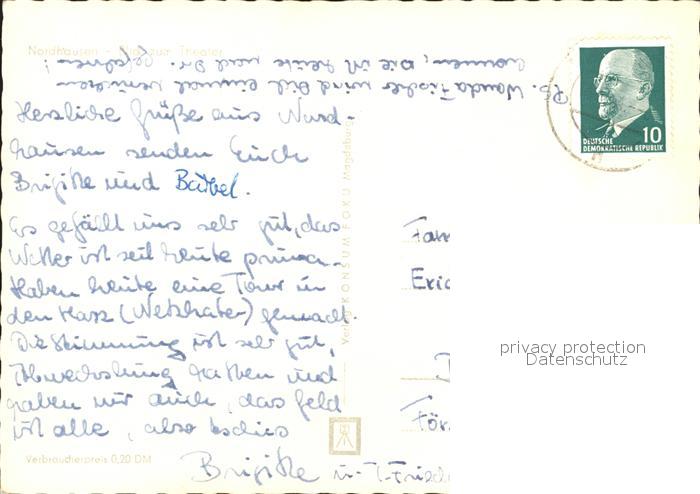 Nordhausen - Blick zum Theater
PS. Wanda Fischer wird Dich einmal
kommen, wie ich heute nach Dr. gefahren!
Herzliche Grüße aus Nord-
hausen senden Euch
Brigitte und Bärbel.
Es gefällt uns sehr gut, das
Wetter ist seit heute prima.
Haben heute eine Tour in
den Harz (Netzkater) gemacht.
Die Stimmung ist sehr gut,
Abwechslung hatten und
haben wir auch, das Geld
ist alle, also tschüs
Brigitte
Verbraucherpreis 0,20 DM
Verlag KONSUM FOKU Magdeburg
10
DEUTSCHE
DEMOKRATISCHE REPUBLIK
Fam
Eric
För
privacy protection
Datenschutz